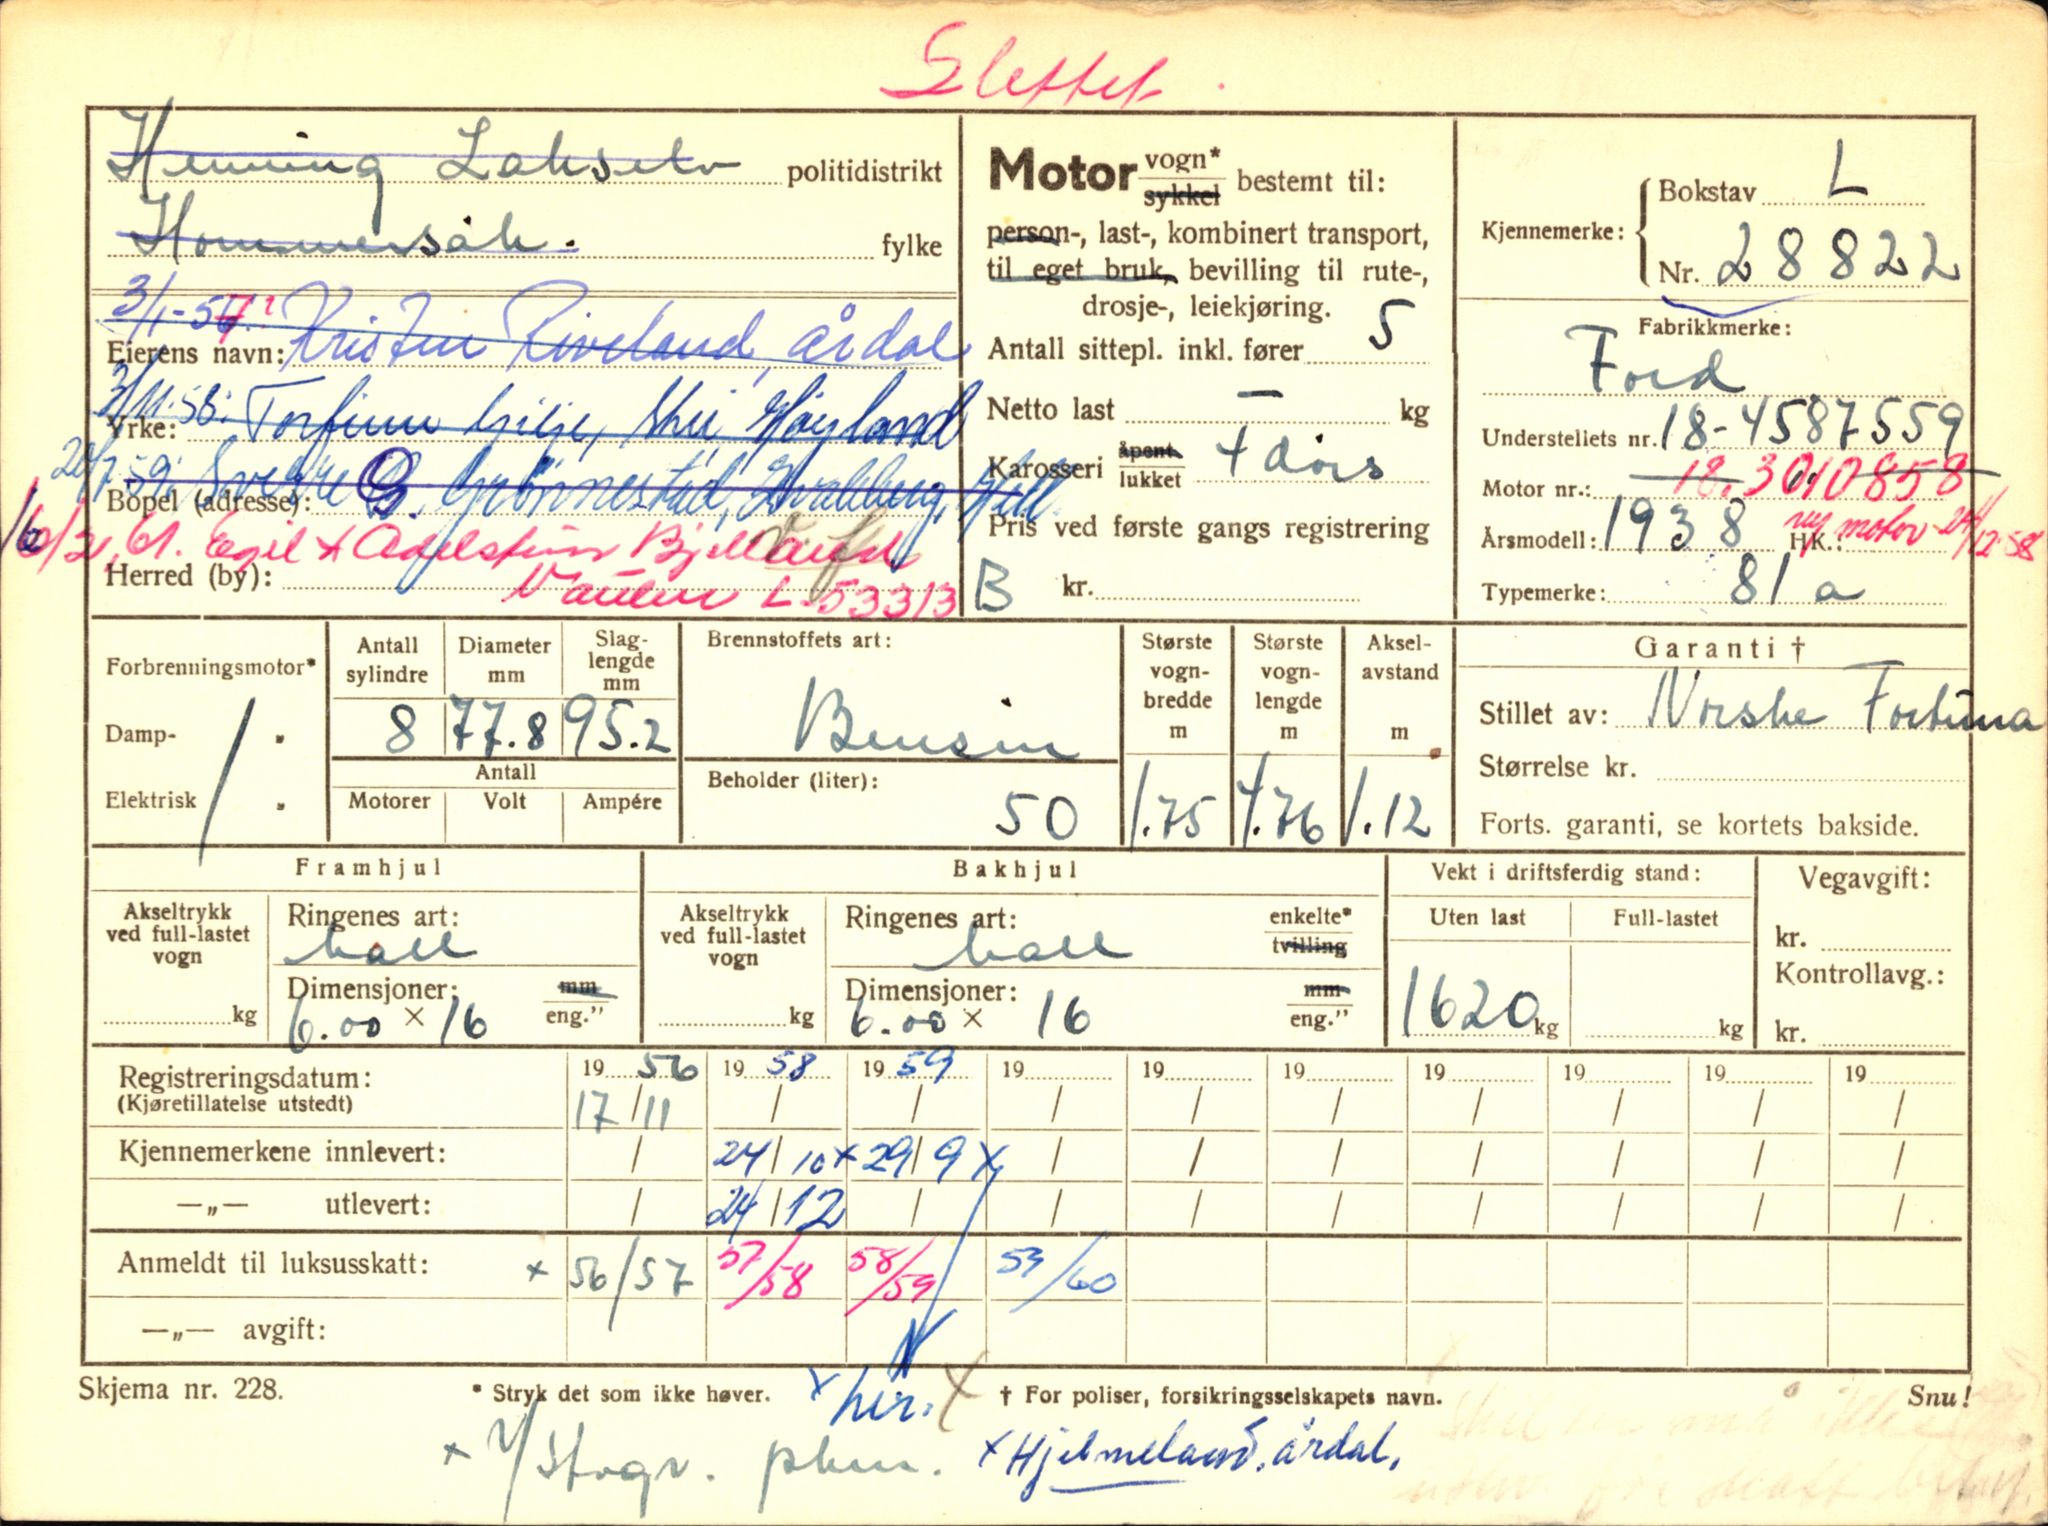 Slettet.
Henning Lakselv politidistrikt
Hommersåk. fylke
3/1-57: Kristen Riveland, Årdal
Eierens navn:
3/11-58: Torfinn Gilje, Høyland
Yrke:
20/7 59: Sverre G. Grønnestad,
Bopel (adresse):
16/2, 61. Egil & Adelsteen Bjelland
Herred (by): Vaulen L-53313
Motor vogn* sykkel bestemt til:
person-, last-, kombinert transport,
til eget bruk, bevilling til rute-,
drosje-, leiekjøring.
Antall sittepl. inkl. fører 5
Netto last — kg
Karosseri åpent lukket 4 dørs
Pris ved første gangs registrering
B kr.
Kjennemerke: Bokstav L
Nr. 28822
Fabrikkmerke:
Ford
Understellets nr. 18-4587559
Motor nr.: 18.3010858
Årsmodell: 1938 HK.: ny motor 24/12-58
Typemerke: 81a
Forbrenningsmotor*
Damp- "
Elektrisk "
Antall sylindre 8
Diameter mm 77.8
Slag-lengde mm 95.2
Antall
Motorer Volt Ampére
Brennstoffets art:
Bensin
Beholder (liter):
50
Største vogn-bredde m 1.75
Største vogn-lengde m 4.76
Aksel-avstand m 1.12
Garanti †
Stillet av: Norske Fortuna
Størrelse kr.
Forts. garanti, se kortets bakside.
Framhjul
Akseltrykk ved full-lastet vogn kg
Ringenes art:
ball
Dimensjoner: mm
6.00 × 16 eng."
Bakhjul
Akseltrykk ved full-lastet vogn kg
Ringenes art: enkelte* tvilling
ball
Dimensjoner: mm
6.00 × 16 eng."
Vekt i driftsferdig stand:
Uten last Full-lastet
1620 kg kg
Vegavgift:
kr.
Kontrollavg.:
kr.
Registreringsdatum: 19 56 19 58 19 59 19 19 19 19 19 19 19
(Kjøretillatelse utstedt) 17/11 / / / / / / / / /
Kjennemerkene innlevert: / 24/10 x 29/9 x / / / / / / /
—"— utlevert: / 24/12 / / / / / / / /
Anmeldt til luksusskatt: x 56/57 57/58 58/59 59/60
—"— avgift:
Skjema nr. 228. * Stryk det som ikke høver. x her. x † For poliser, forsikringsselskapets navn. Snu!
x x Hjelmeland, Årdal.